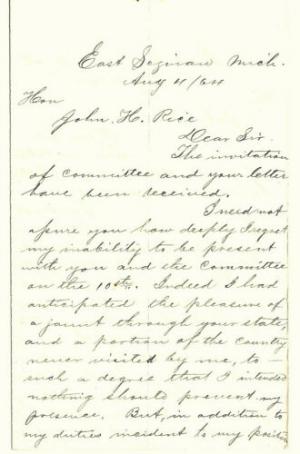 East Saginaw Mich.
Aug 4/64
Hon
John. H. Rice
Dear Sir.
The invitation
of committee and your letter
have been received.
I need not
assure you how deeply I regret
my inability to be present
with you and the committee
on the 10th. Indeed I had
anticipated the pleasure of
a jaunt through your state,
and a portion of the country
never visited by me, to —
such a degree that I intended
nothing should prevent my
presence. But, in addition to
my duties incident to my position